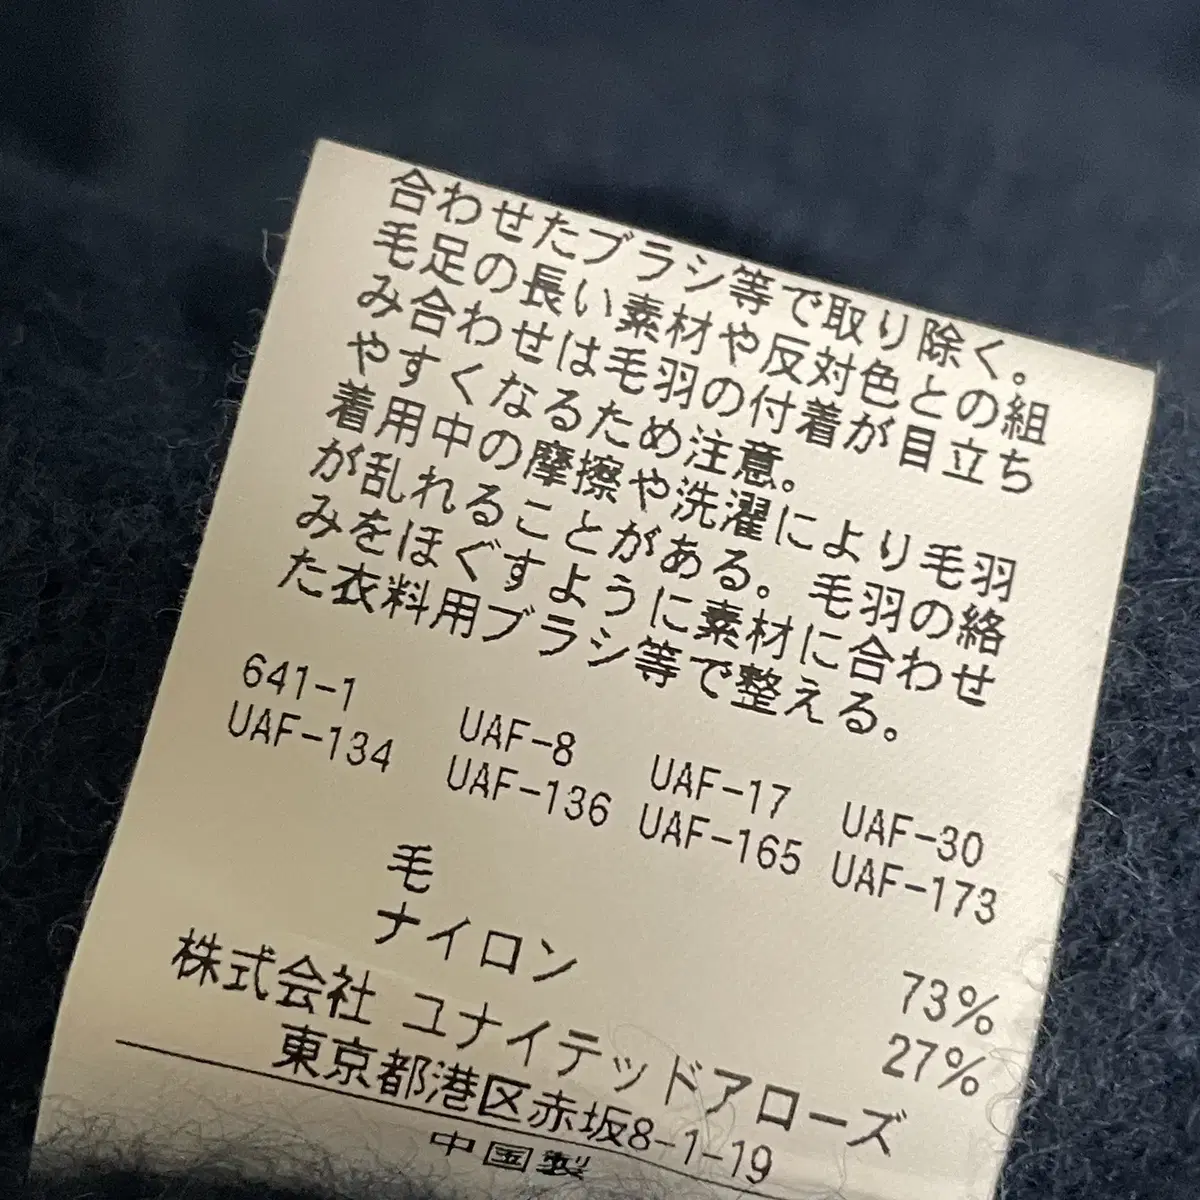 合わせたブラシ等で取り除く。
毛足の長い素材や反対色との組
み合わせは毛羽の付着が目立ち
やすくなるため注意。
着用中の摩擦や洗濯により毛羽
が乱れることがある。毛羽の絡
みをほぐすように素材に合わせ
た衣料用ブラシ等で整える。
641-1 UAF-8 UAF-17 UAF-30
UAF-134 UAF-136 UAF-165 UAF-173
毛 73%
ナイロン 27%
株式会社 ユナイテッドアローズ
東京都港区赤坂8-1-19
中国製